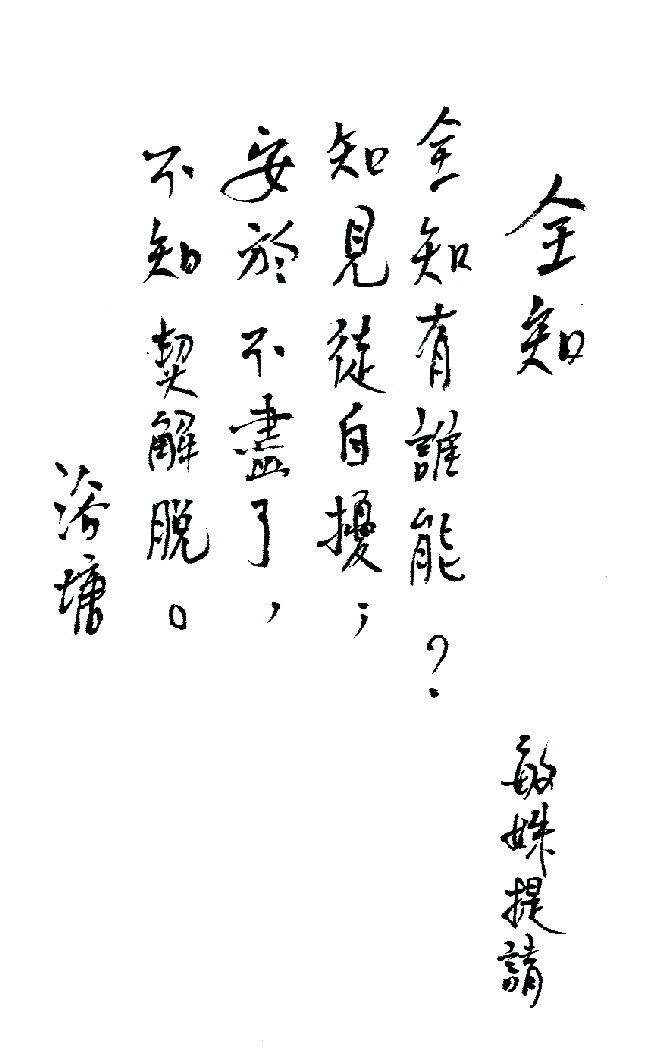 全知
敏姝提請
全知有誰能？
知見徒自擾；
安於不盡了，
不知契解脫。
浴塘